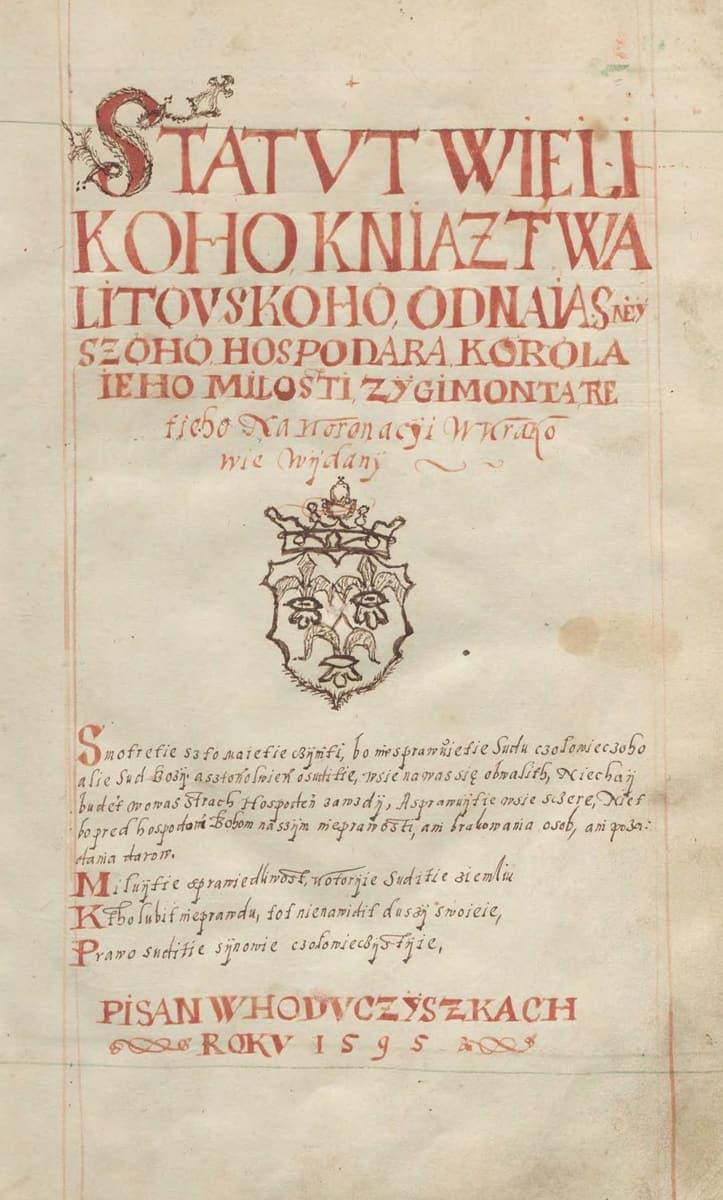 STATVT WIELI
KOHO, KNIAZTWA
LITOVSKOHO, ODNAIASNEY
SZOHO, HOSPODARA, KOROLA
IEHO MILOSTI, ZYGIMONTA, TRE
tieho Na Koronacyi W Krako
wie Wydany
Smotretie szto maietie czyniti, bo nie sprawuietie Sudu czołowieczoho
alie Sud Bozy a sztokolwiek osuditie, wsie na was się obwalith, Niechaij
budet wowas Strach Hospoden zawzdy, A sprawuijtie wsie sczere, Niet
bo pred hospodom Bohom nassym nieprawosti, ani brakowania osob, ani poża-
dania darow.
Miluijtie sprawiedliwost, kotoryie Suditie ziemliu
Ktho lubit nieprawdu, tot nienawidit duszy swoieie,
Prawo suditie synowie czołowieczystyie,
PISAN W HODVCZYSZKACH
ROKV 1595